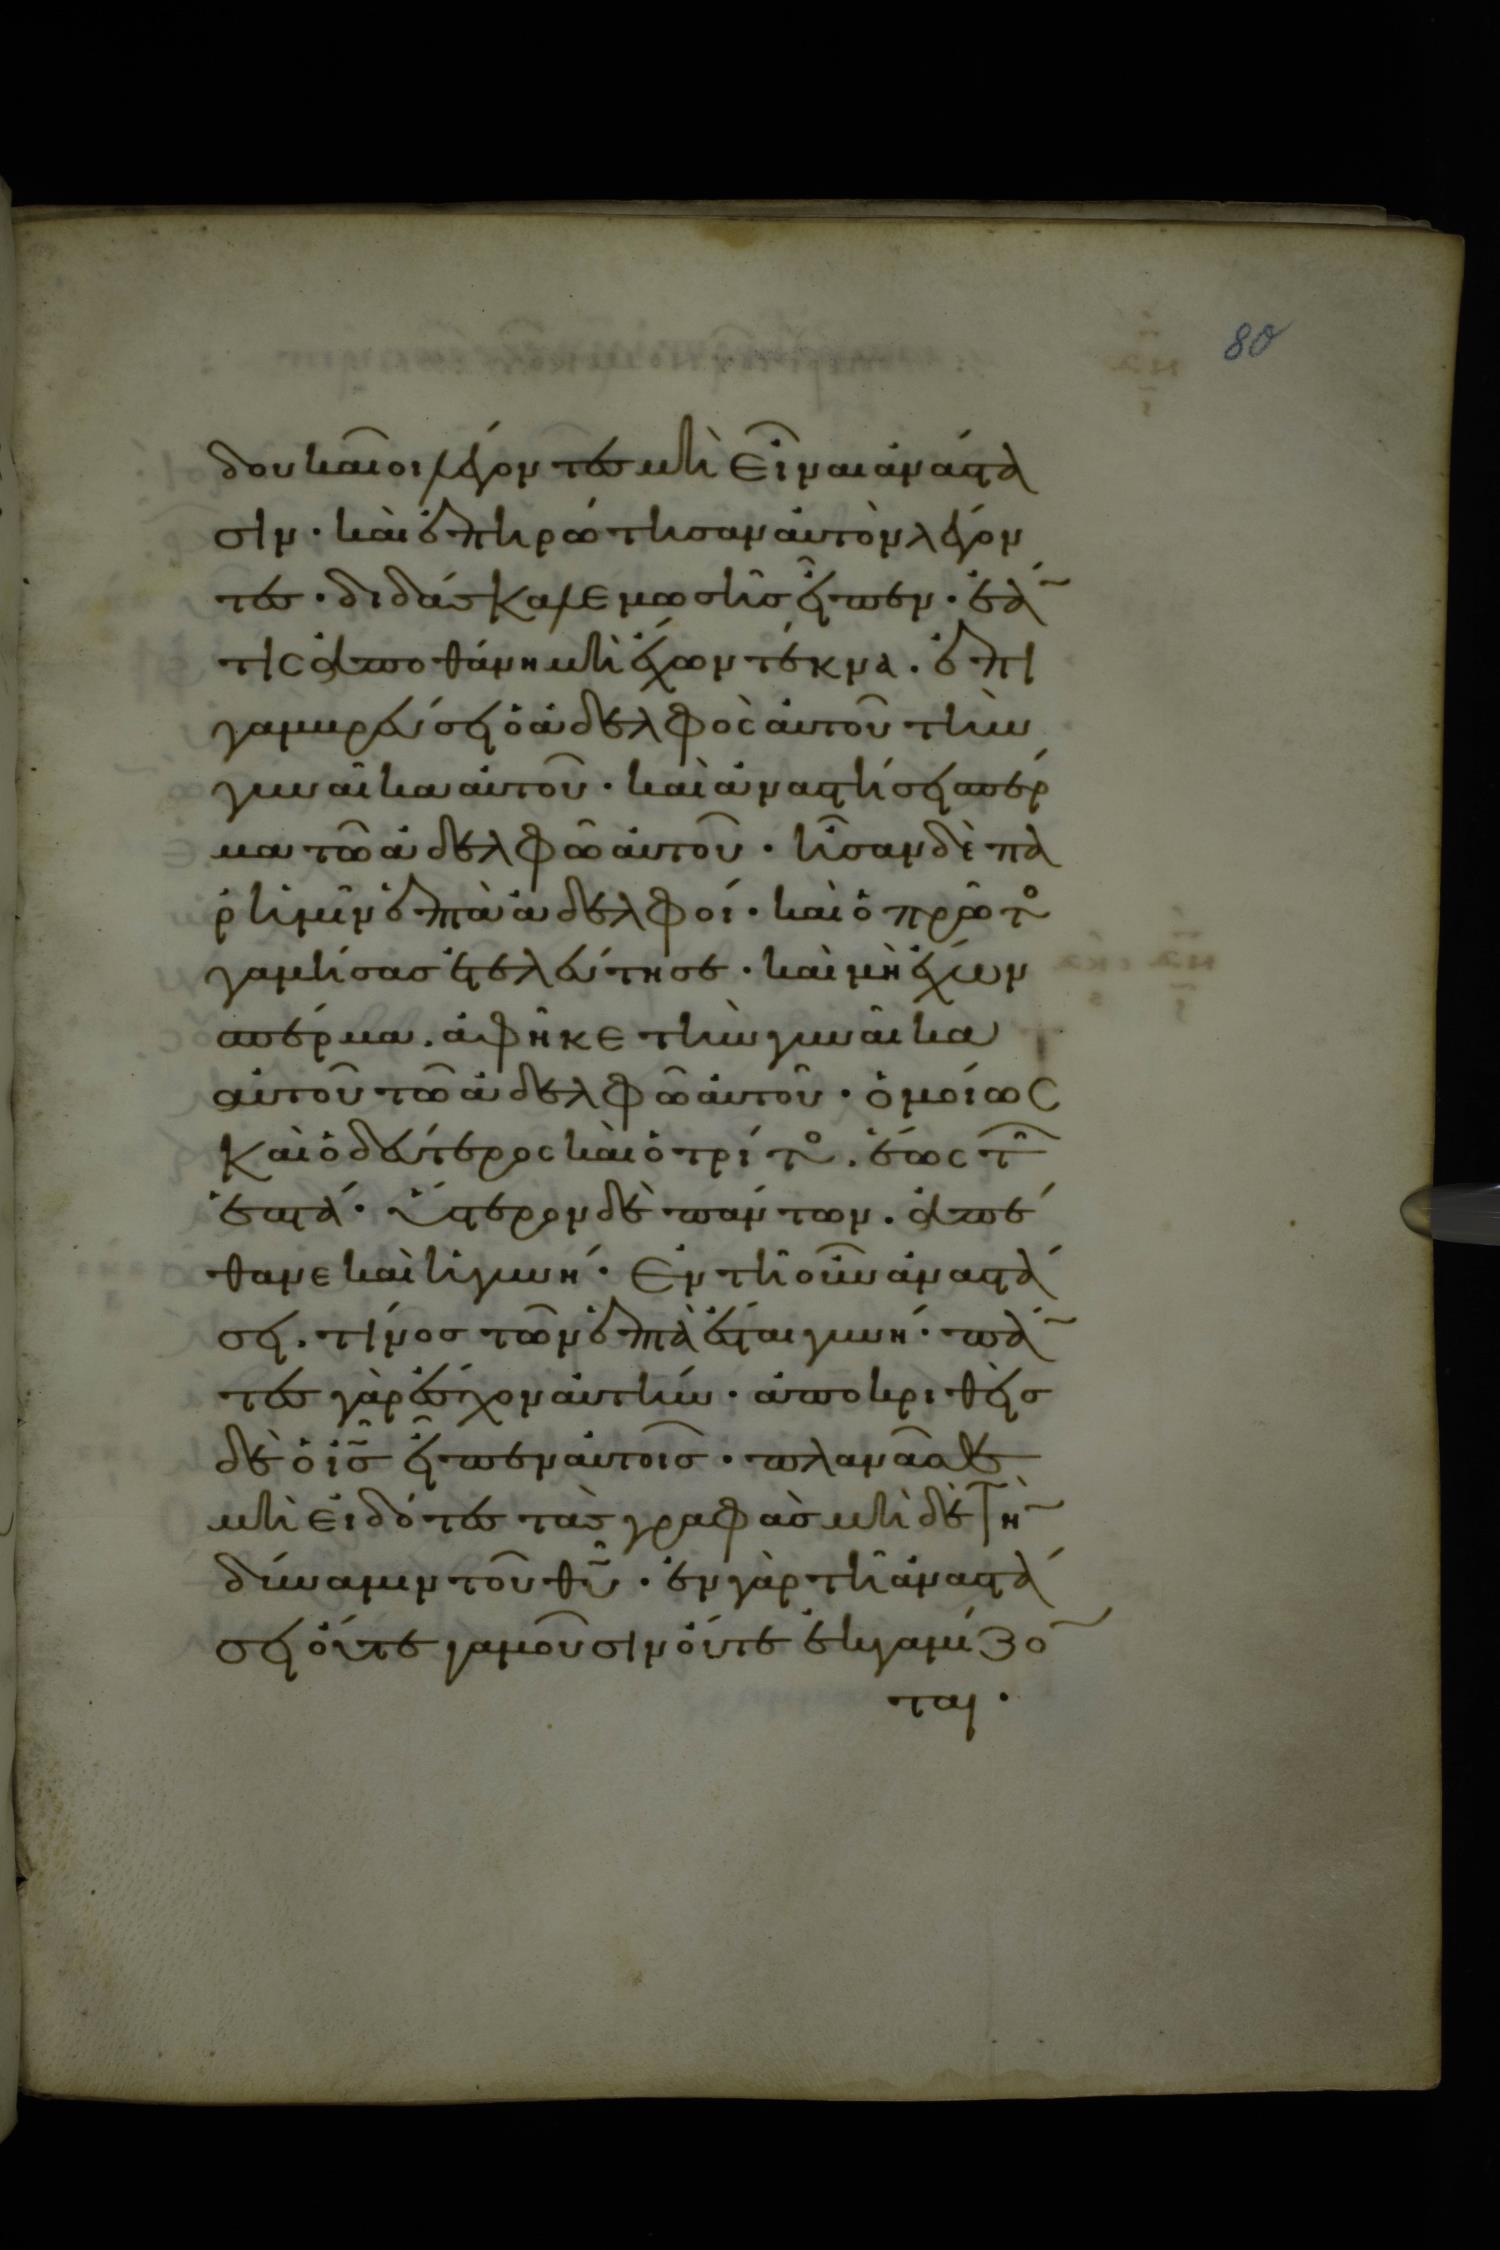 80
δουκαῖοι λέγοντες μὴ εἶναι ἀνάστα
σιν · καὶ ἐπηρώτησαν αὐτὸν λέγον
τες · διδάσκαλε μωσῆς εἶπεν · ἐὰ̄
τις ἀποθάνη μὴ ἔχων τέκνα . ἐπι
γαμβρεύσει ὁ ἀδελφὸς αὐτοῦ τὴν
γυναῖκα αὐτοῦ · καὶ ἀναστήσει σπέρ
μα τῶ ἀδελφῶ αὐτοῦ · ἦσαν δὲ πα
ρ ἡμῖν ἑπτὰ ἀδελφοί · καὶ ὁ πρῶτο
γαμήσας ἐτελεύτησε · καὶ μὴ ἔχων
σπέρμα . ἀφῆκε τὴν γυναῖκα
αὐτοῦ τῶ ἀδελφῶ αὐτοῦ · ὁμοίως
καὶ ὁ δεύτερος καὶ ὁ τρίτο . ἕως τῶ
ἑπτά · ὕστερον δὲ πάντων . ἀπέ
θανε καὶ ἡ γυνή · Ἐν τῆ οὖν ἀναστά
σει . τίνος τῶν ἑπτὰ ἔσται γυνή · πά̄
τες γὰρ ἔσχον αὐτήν · ἀποκριθεὶς
δὲ ὁ ις̄ εἶπεν αὐτοῖς · πλανᾶσθε
μὴ εἰδότες τὰς γραφὰς μὴ δὲ τὴ̄
δύναμιν τοῦ θῡ · ἐν γὰρ τῆ ἀναστά
σει οὔτε γαμοῦσιν οὔτε ἐκγαμίζο̄
ται ·